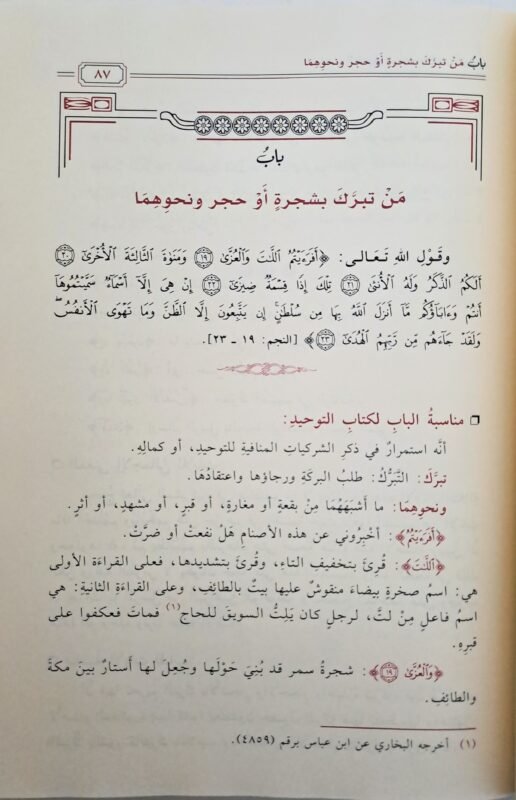 بابُ مَنْ تبرَّكَ بشجرةٍ أَوْ حجر ونحوِهِمَا
٨٧
بابُ
مَنْ تبرَّكَ بشجرةٍ أَوْ حجر ونحوِهِمَا
وقَوْلِ اللهِ تَعَـالَى: ﴿أَفَرَءَيْتُمُ ٱللَّٰتَ وَٱلْعُزَّىٰ ١٩ وَمَنَوٰةَ ٱلثَّالِثَةَ ٱلْأُخْرَىٰٓ ٢٠
أَلَكُمُ ٱلذَّكَرُ وَلَهُ ٱلْأُنثَىٰ ٢١ تِلْكَ إِذًا قِسْمَةٌ ضِيزَىٰٓ ٢٢ إِنْ هِىَ إِلَّآ أَسْمَآءٌ سَمَّيْتُمُوهَآ
أَنتُمْ وَءَابَآؤُكُم مَّآ أَنزَلَ ٱللَّهُ بِهَا مِن سُلْطَٰنٍ ۚ إِن يَتَّبِعُونَ إِلَّا ٱلظَّنَّ وَمَا تَهْوَى ٱلْأَنفُسُ ۖ
وَلَقَدْ جَآءَهُم مِّن رَّبِّهِمُ ٱلْهُدَىٰٓ ٢٣﴾ [النجم: ١٩ ـ ٢٣].
❒ مناسبةُ البابِ لكتابِ التوحيدِ:
أنَّه استمرارٌ في ذكرِ الشركياتِ المنافيةِ للتوحيدِ، أو كمالِهِ.
تبرَّكَ: التَّبَرُّكُ: طلبُ البركةِ ورجاؤها واعتقادُهَا.
ونحوِهِمَا: ما أشبَهَهُمَا مِنْ بقعةٍ أو مغارةٍ، أو قبرٍ، أو مشهدٍ، أو أثرٍ.
﴿أَفَرَءَيْتُمُ﴾: أخْبِرُوني عن هذه الأصنامِ هَلْ نفعتْ أو ضرَّتْ.
﴿ٱللَّٰتَ﴾: قُرِئَ بتخفيفِ التاءِ، وقُرئَ بتشديدِها، فعلى القراءَةِ الأولى
هي: اسمُ صخرةٍ بيضاءَ منقوشٌ عليها بيتٌ بالطائفِ، وعلى القراءةِ الثانيةِ: هي
اسمُ فاعلٍ مِنْ لتَّ، لرجلٍ كان يَلِتُّ السويقَ للحاجِ(١) فماتَ فعكفوا على
قبرِهِ.
﴿وَٱلْعُزَّىٰ ١٩﴾: شجرةُ سمر قد بُنِيَ حَوْلَها وجُعِلَ لها أَستارٌ بينَ مكةَ
والطائفِ.
(١) أخرجه البخاري عن ابن عباس برقم (٤٨٥٩).